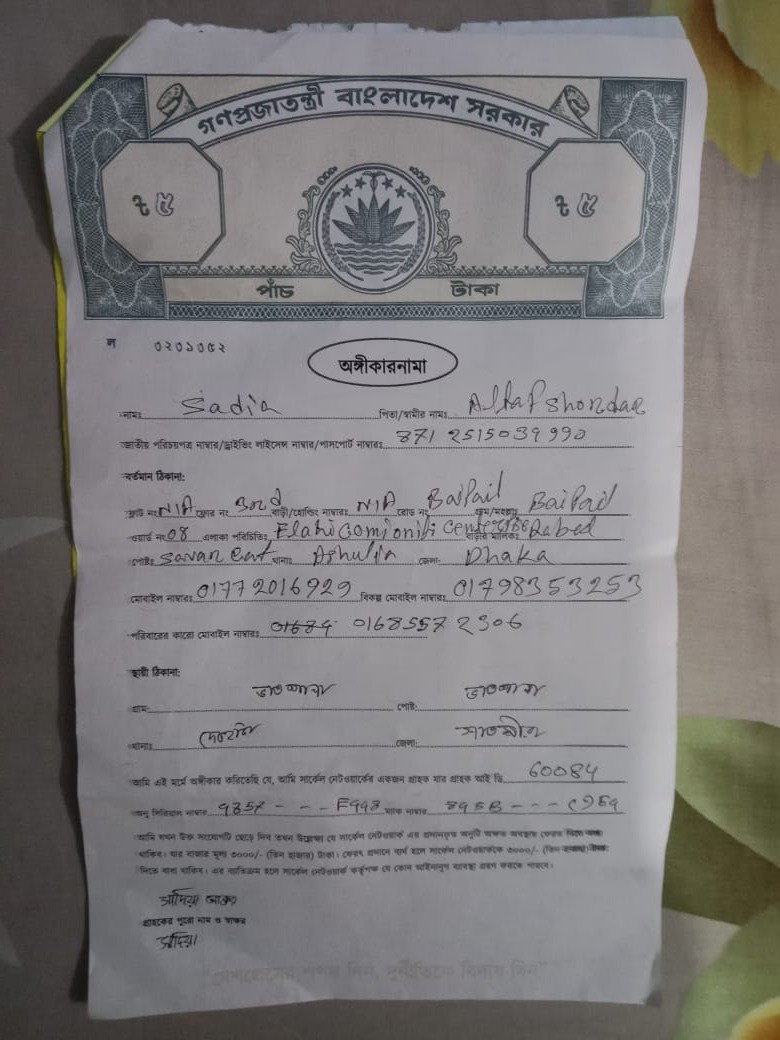 গণপ্রজাতন্ত্রী বাংলাদেশ সরকার
৳ ৫ ৳ ৫
পাঁচ টাকা
ল ৩২০১০৫২
অঙ্গীকারনামা
নামঃ Sadia পিতা/স্বামীর নামঃ Altaf Shordar
জাতীয় পরিচয়পত্র নাম্বার/ড্রাইভিং লাইসেন্স নাম্বার/পাসপোর্ট নাম্বারঃ 871 2515039990
বর্তমান ঠিকানা:
ফ্লাট নংঃ N/A ফ্লোর নং 3rd বাড়ী/হোল্ডিং নাম্বারঃ N/A রোড নং Baipail গ্রাম/মহল্লাঃ Baipail
ওয়ার্ড নংঃ 08 এলাকা পরিচিতিঃ Elahi Comioniti Center বাড়ীর মালিকঃ Rabed
পোষ্টঃ Savar Cent থানাঃ Ashulia জেলা: Dhaka
মোবাইল নাম্বারঃ 01772016929 বিকল্প মোবাইল নাম্বারঃ 01798353253
পরিবারের কারো মোবাইল নাম্বারঃ 01685572306
স্থায়ী ঠিকানা:
গ্রাম: পোষ্ট:
থানাঃ দেবহাটা জেলা: সাতক্ষীরা
আমি এই মর্মে অঙ্গীকার করিতেছি যে, আমি সার্কেল নেটওয়ার্কের একজন গ্রাহক যার গ্রাহক আই ডি 60084
অনু সিরিয়াল নাম্বার 9857 - - - F993 ম্যাক নাম্বার 895B - - - C959
আমি যখন উক্ত সংযোগটি ছেড়ে দিব তখন উল্লেখ্য যে সার্কেল নেটওয়ার্ক এর প্রদানকৃত অনুটি অক্ষত অবস্থায় ফেরত দিতে বাধ্য
থাকিব। যার বাজার মূল্য ৩০০০/- (তিন হাজার) টাকা। ফেরৎ প্রদানে ব্যর্থ হলে সার্কেল নেটওয়ার্ককে ৩০০০/- (তিন হাজার) টাকা
দিতে বাধ্য থাকিব। এর ব্যতিক্রম হলে সার্কেল নেটওয়ার্ক কর্তৃপক্ষ যে কোন আইনানুগ ব্যবস্থা গ্রহণ করতে পারবে।
সাদিয়া আক্তার
গ্রাহকের পুরো নাম ও স্বাক্ষর
সাদিয়া
"দেশপ্রেমের শপথ নিন, দুর্নীতিকে বিদায় দিন"